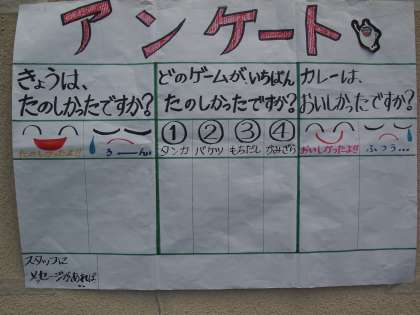 アンケート
きょうは、
たのしかったですか?
どのゲームが、いちばん
たのしかったですか?
カレーは、
おいしかったですか?
たのしかったよ!!
う――ん。
① ② ③ ④
タンカ バケツ もちだし かみざら
おいしかったよ!!
ふつう…
スタッフに
メッセージがあれば